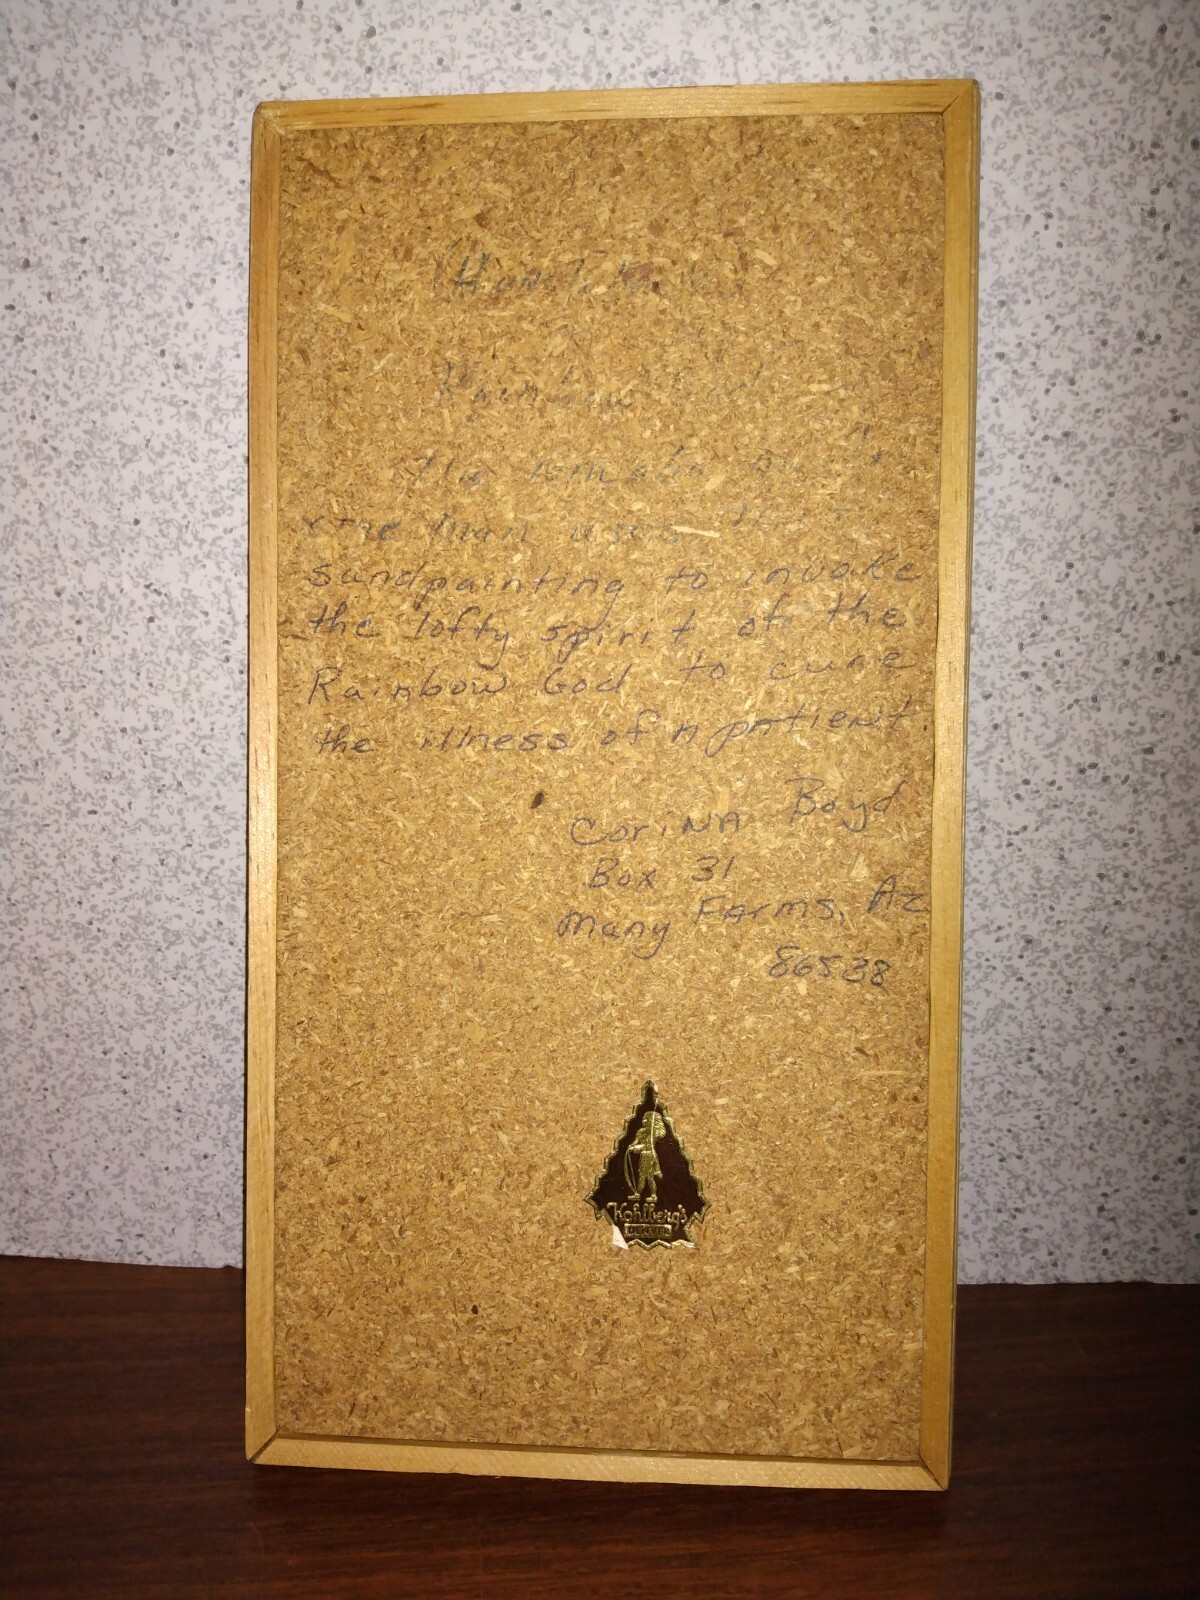 Rainbow God
cine man uses this
sandpainting to invoke
the lofty spirit of the
Rainbow God to cure
the illness of A patient.
CoriNA Boyd
Box 31
Many FArms, Az
86538
Kohlberg's